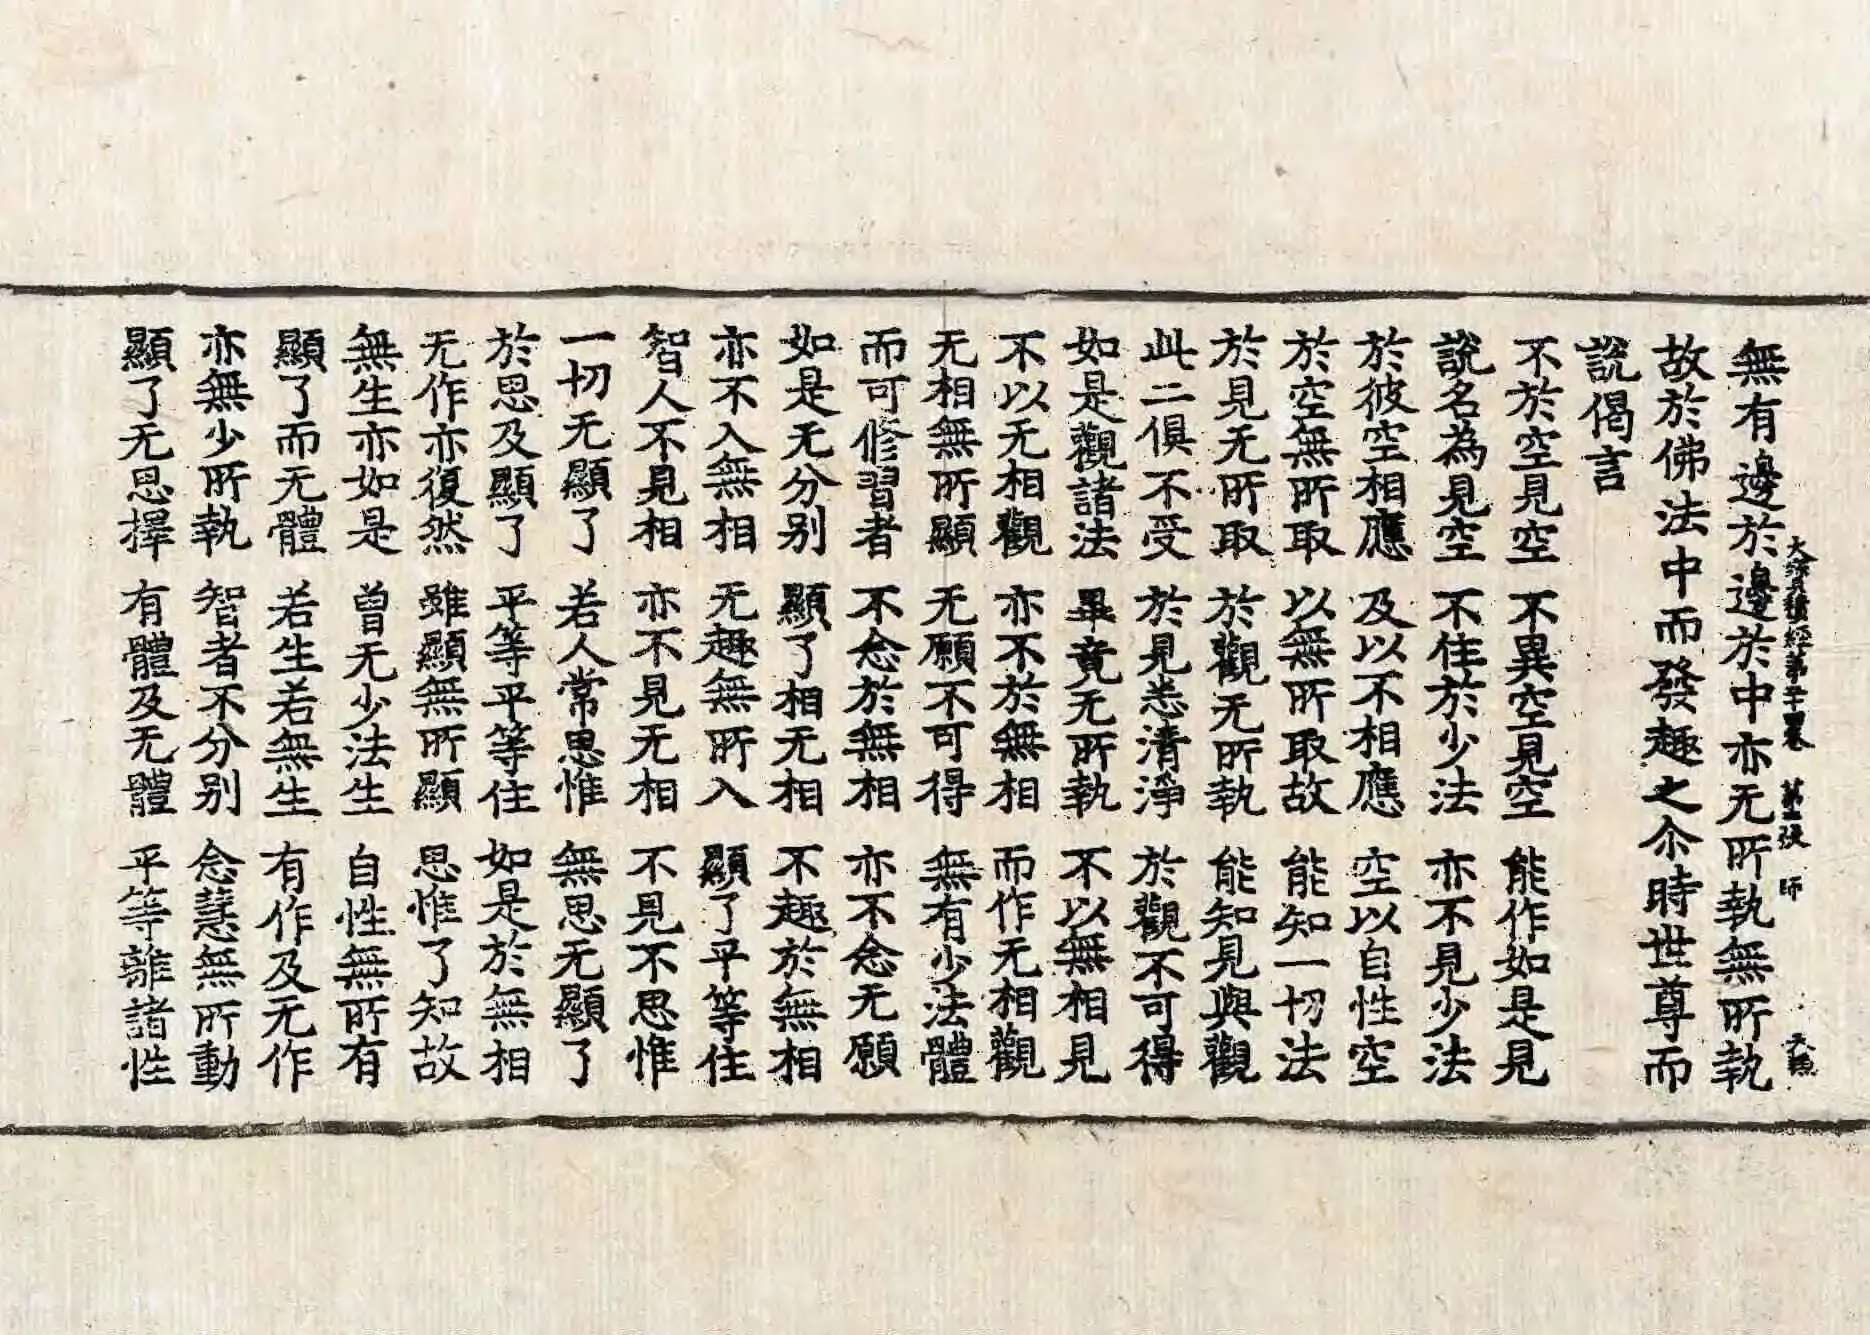 大寶積經第二十四卷 張 師
無有邊於邊於中亦无所執無所執
故於佛法中而發趣之尒時世尊而
說偈言
不於空見空 不異空見空 能作如是見
說名為見空 不住於少法 亦不見少法
於彼空相應 及以不相應 空以自性空
於空無所取 以無所取故 能知一切法
於見无所取 於觀无所執 能知見與觀
此二俱不受 於見悉清淨 於觀不可得
如是觀諸法 畢竟无所執 不以無相見
不以无相觀 亦不於無相 而作无相觀
无相無所顯 无願不可得 無有少法體
而可修習者 不念於無相 亦不念无願
如是无分别 顯了相无相 不趣於無相
亦不入無相 无趣無所入 顯了平等住
智人不見相 亦不見无相 不見不思惟
一切无顯了 若人常思惟 無思无顯了
於思及顯了 平等平等住 如是於無相
无作亦復然 雖顯無所顯 思惟了知故
無生亦如是 曾无少法生 自性無所有
顯了而无體 若生若無生 有作及无作
亦無少所執 智者不分别 念慧無所動
顯了无思擇 有體及无體 平等離諸性